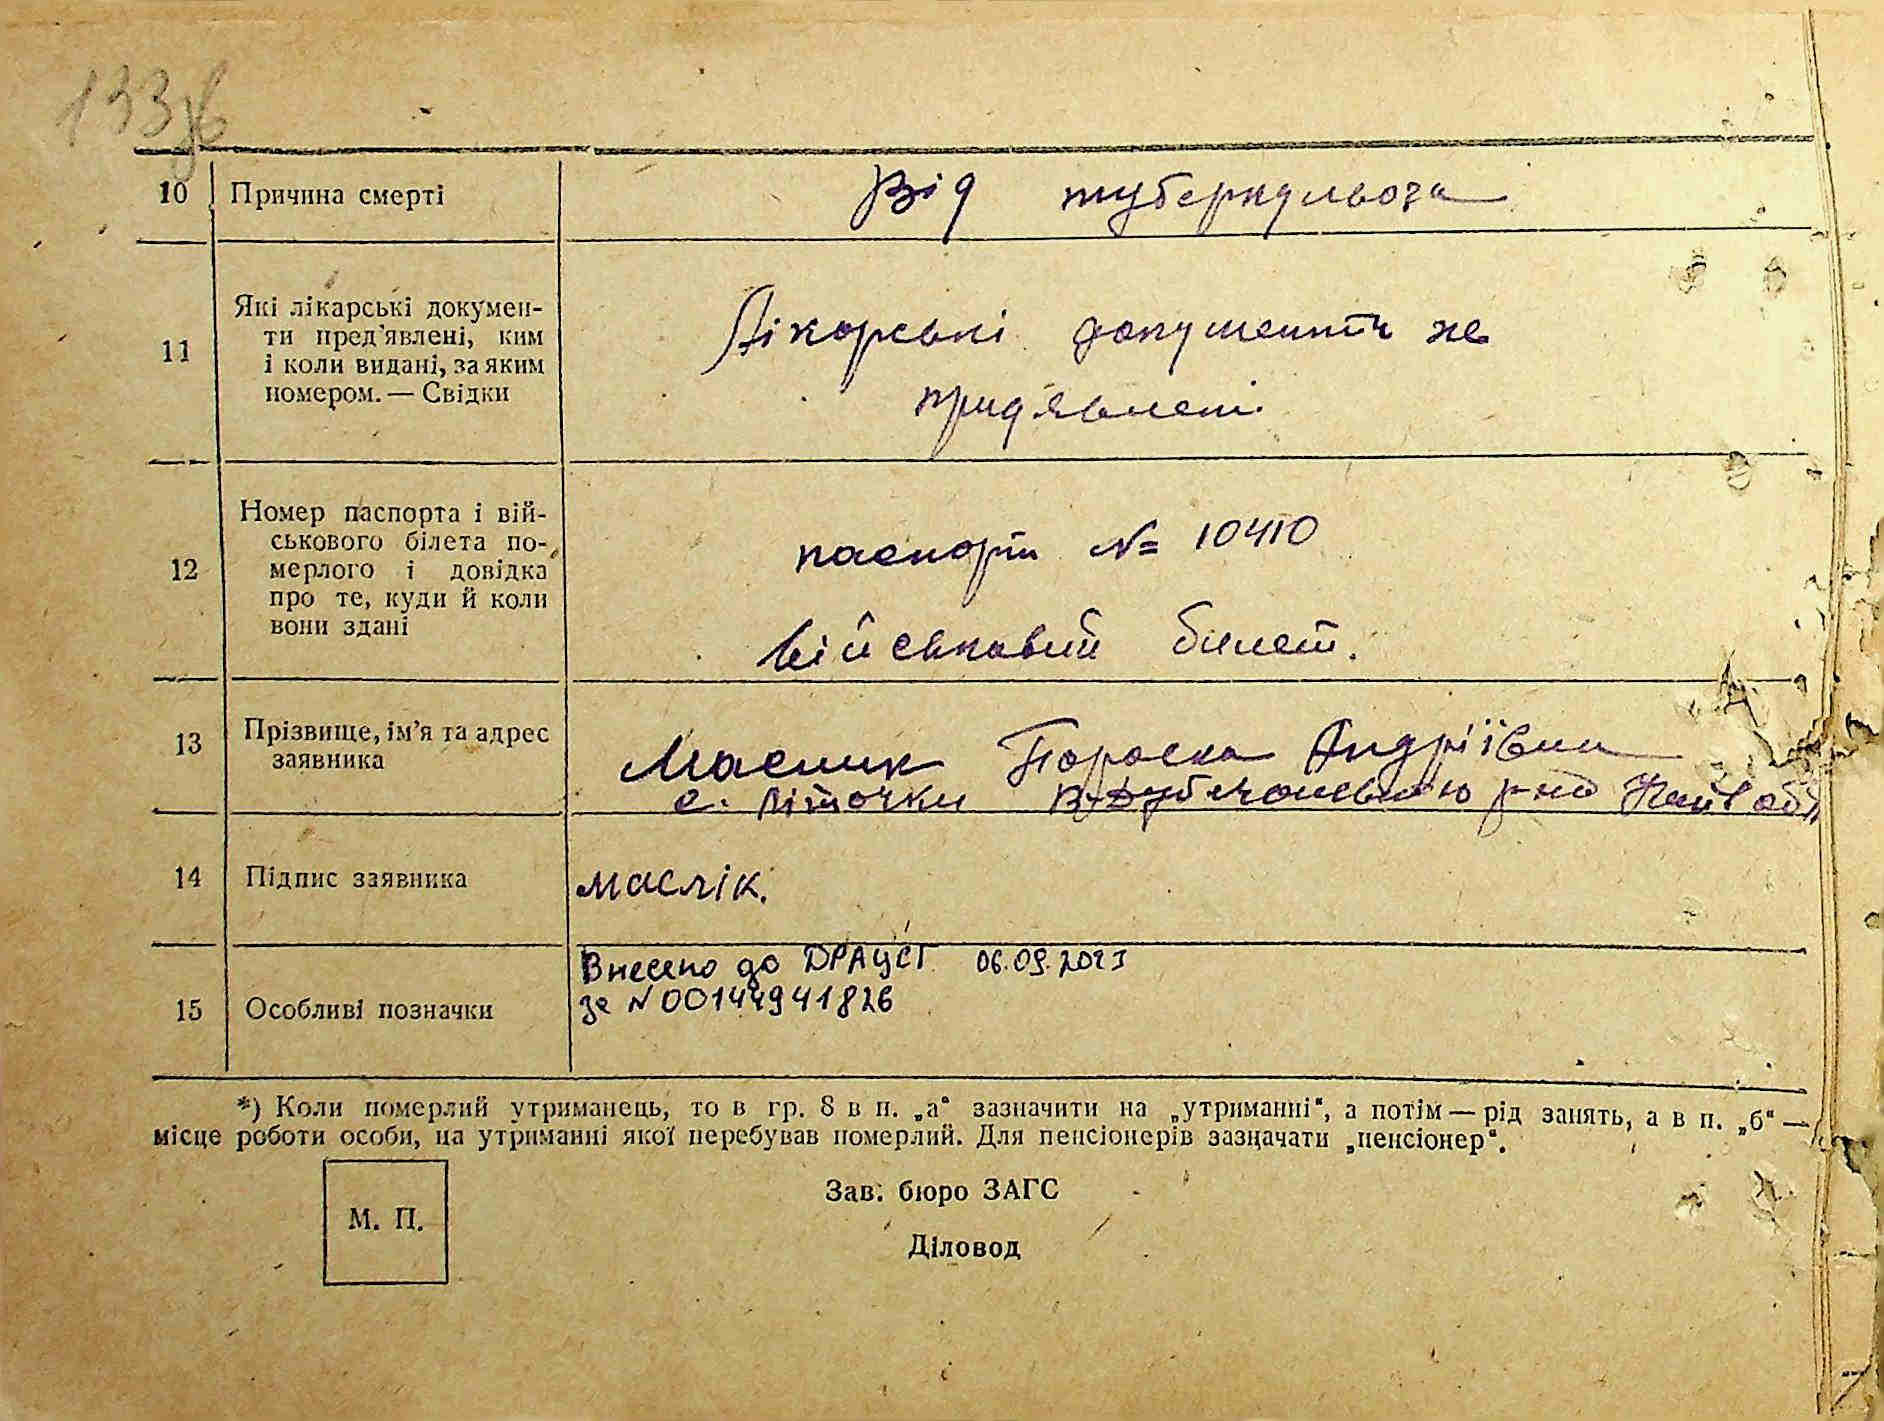 133
10 Причина смерті Від туберкульоза
11 Які лікарські докумен-
ти пред'явлені, ким
і коли видані, за яким
номером. — Свідки
Лікорські документи не
придявлені.
12 Номер паспорта і вій-
ськового білета по-
мерлого і довідка
про те, куди й коли
вони здані
паспорт № 10410
військовий билет.
13 Прізвище, ім'я та адрес
заявника
Маслик Пораска Андріївна
с. Літочки В-Дубечанського р-на Київ обл
14 Підпис заявника маслік.
15 Особливі позначки
Внесено до ДРАЦСГ 06.09.2023
за N 00144941826
*) Коли померлий утриманець, то в гр. 8 в п. „а“ зазначити на „утриманні“, а потім — рід занять, а в п. „б“ —
місце роботи особи, на утриманні якої перебував померлий. Для пенсіонерів зазначати „пенсіонер“.
М. П.
Зав. бюро ЗАГС
Діловод